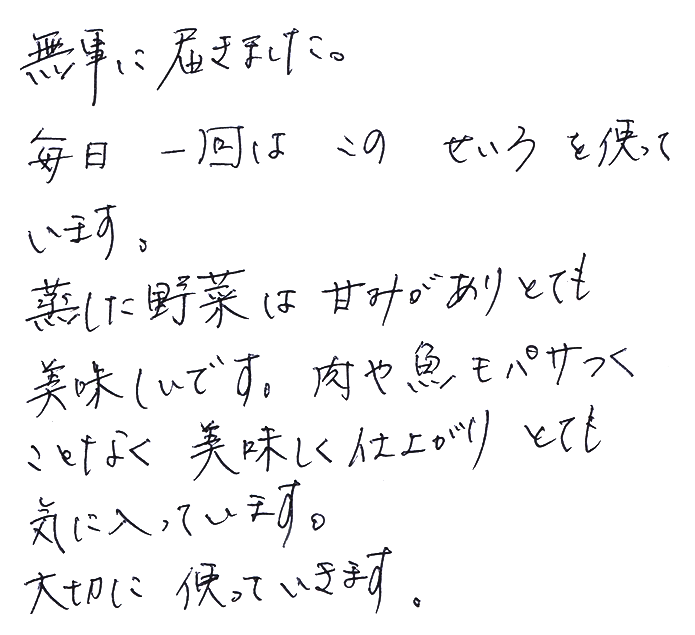 無事に届きました。
毎日 一回は この せいろ を使って
います。
蒸した野菜は 甘みがありとても
美味しいです。肉や魚もパサつく
こともなく 美味しく仕上がり とても
気に入っています。
大切に 使っていきます。